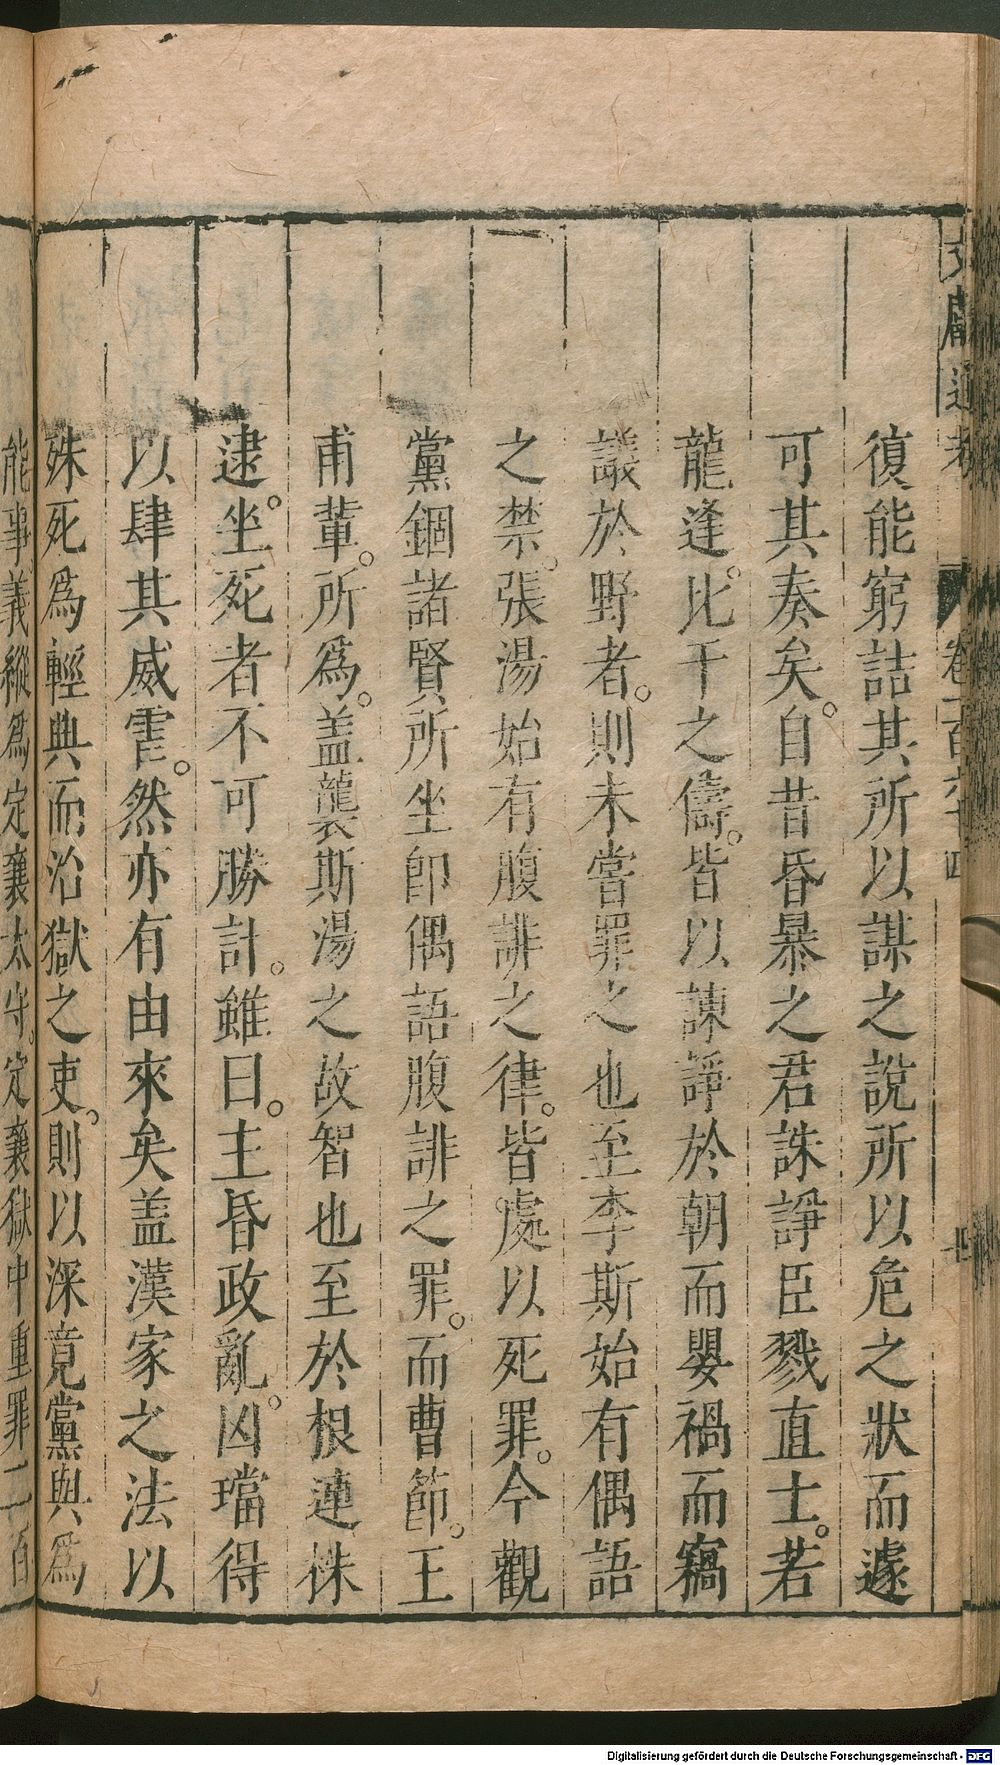 文獻通考 卷一百六十四
復能窮詰其所以謀之說所以危之狀而遽
可其奏矣。自昔昏暴之君誅諍臣戮直士。若
龍逢。比干之儔。皆以諫諍於朝而嬰禍而竊
議於野者。則未嘗罪之也至李斯始有偶語
之禁。張湯始有腹誹之律。皆處以死罪。今觀
黨錮諸賢所坐卽偶語腹誹之罪。而曹節。王
甫輩。所爲。盖襲斯湯之故智也至於根連株
逮。坐死者不可勝計。雖曰。主昏政亂。凶璫得
以肆其威虐。然亦有由來矣盖漢家之法以
殊死爲輕典而治獄之吏。則以深竟黨與爲
能事。義縱爲定襄太守。定襄獄中重罪二百
Digitalisierung gefördert durch die Deutsche Forschungsgemeinschaft - DFG